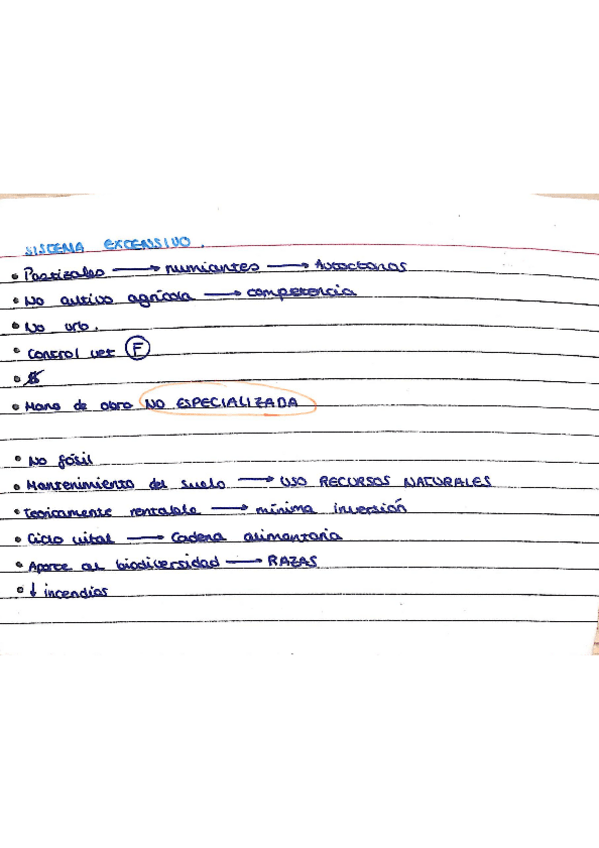 SISTEMA EXTENSIVO.
• Pastizales → rumiantes → Autóctonas
• No cultivo agrícola → competencia
• No urb.
• Control vet (F)
• $
• Mano de obra NO ESPECIALIZADA
• No fósil
• Mantenimiento del suelo → USO RECURSOS NATURALES
• Teóricamente rentable → mínima inversión
• Ciclo vital → Cadena alimentaria
• Aporte al biodiversidad → RAZAS
• ↓ incendios